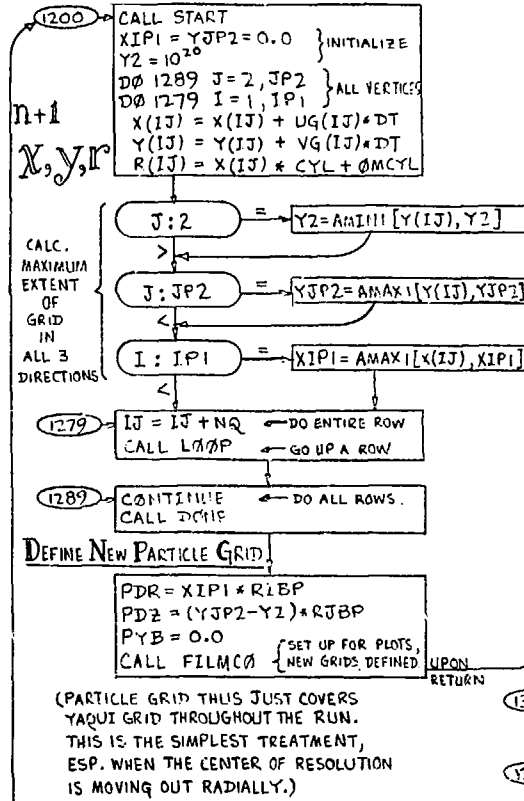 1200
CALL START
XIP1 = YJP2 = 0.0 } INITIALIZE
Y2 = 10^20
DØ 1289 J = 2, JP2 } ALL VERTICES
DØ 1279 I = 1, IP1
X(IJ) = X(IJ) + UG(IJ)*DT
Y(IJ) = Y(IJ) + VG(IJ)*DT
R(IJ) = X(IJ) * CYL + ØMCYL
n+1
x,y,r
CALC.
MAXIMUM
EXTENT
OF
GRID
IN
ALL 3
DIRECTIONS
J:2
=
Y2=AMIN1[Y(IJ), Y2]
>
J:JP2
=
YJP2=AMAX1[Y(IJ),YJP2]
<
I: IP1
=
XIP1=AMAX1[X(IJ),XIP1]
<
1279
IJ = IJ + NQ ← DO ENTIRE ROW
CALL LØØP ← GO UP A ROW
1289
CØNTINUE ← DO ALL ROWS.
CALL DØNE
DEFINE NEW PARTICLE GRID
PDR = XIP1 * RIBP
PDZ = (YJP2-Y2)*RJBP
PYB = 0.0
CALL FILMCØ { SET UP FOR PLOTS, NEW GRIDS DEFINED
UPON
RETURN
(PARTICLE GRID THUS JUST COVERS
YAQUI GRID THROUGHOUT THE RUN.
THIS IS THE SIMPLEST TREATMENT,
ESP. WHEN THE CENTER OF RESOLUTION
IS MOVING OUT RADIALLY.)